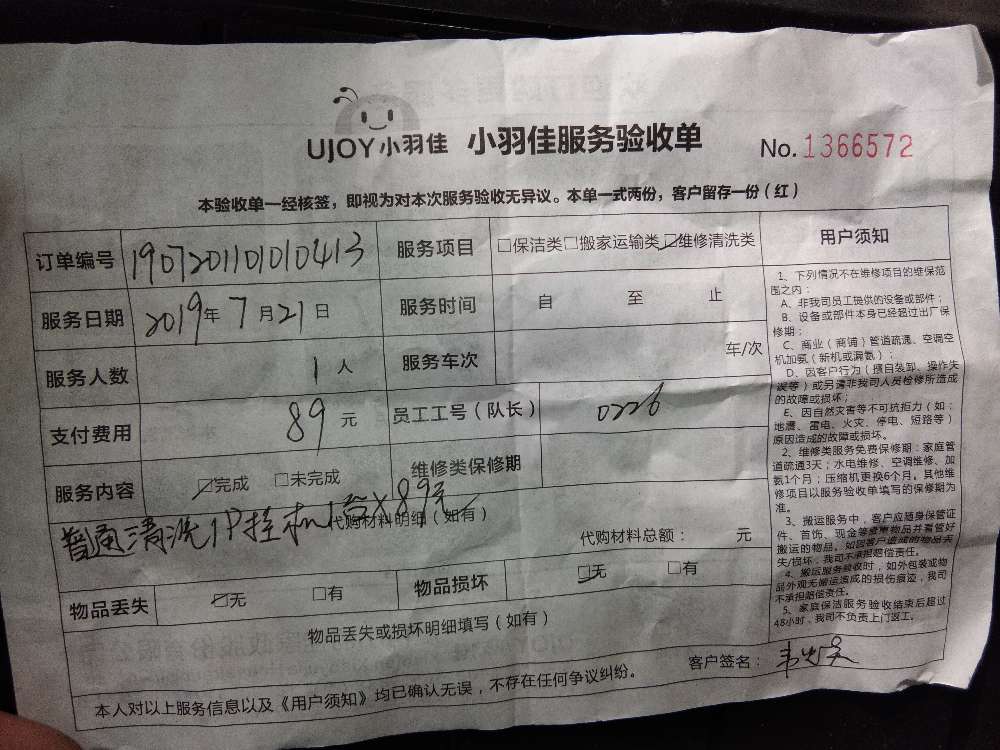 UJOY小羽佳 小羽佳服务验收单 No.1366572
本验收单一经核签，即视为对本次服务验收无异议。本单一式两份，客户留存一份（红）
订单编号 190720110101010413 服务项目 □保洁类□搬家运输类☑维修清洗类
服务日期 2019年7月21日 服务时间 自 至 止
服务人数 1人 服务车次 车/次
支付费用 89元 员工工号（队长） 0226
服务内容 ☑完成 □未完成 维修类保修期
普通清洗1P挂机1台×89元
代购材料明细（如有） 代购材料总额： 元
物品丢失 ☑无 □有 物品损坏 ☑无 □有
物品丢失或损坏明细填写（如有）
客户签名：
本人对以上服务信息以及《用户须知》均已确认无误，不存在任何争议纠纷。
用户须知
1、下列情况不在维修项目的维保范
围之内：
A、非我司员工提供的设备或部件；
B、设备或部件本身已经超过出厂保
修期；
C、商业（商铺）管道疏通、空调空
机加氨（新机或漏氨）；
D、因客户行为（擅自装卸、操作失
误等）或另请非我司人员检修所造成
的故障或损坏；
E、因自然灾害等不可抗拒力（如：
地震、雷电、火灾、停电、短路等）
原因造成的故障或损坏。
2、维修类服务免费保修期：家庭管
道疏通3天；水电维修、空调维修、加
氨1个月；压缩机更换6个月。其他维
修项目以服务验收单填写的保修期为
准。
3、搬运服务中，客户应随身保管证
件、首饰、现金等贵重物品并看管好
搬运的物品。如因客户造成的物品丢
失/损坏，我司不承担赔偿责任。
4、搬运服务验收时，如外包装或物
品外观无搬运造成的损伤痕迹，我司
不承担赔偿责任。
5、家庭保洁服务验收结束后超过
48小时，我司不负责上门返工。